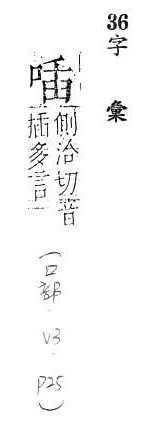 36字彙
㖞側洽切音
插多言
(口部 V3 P25)